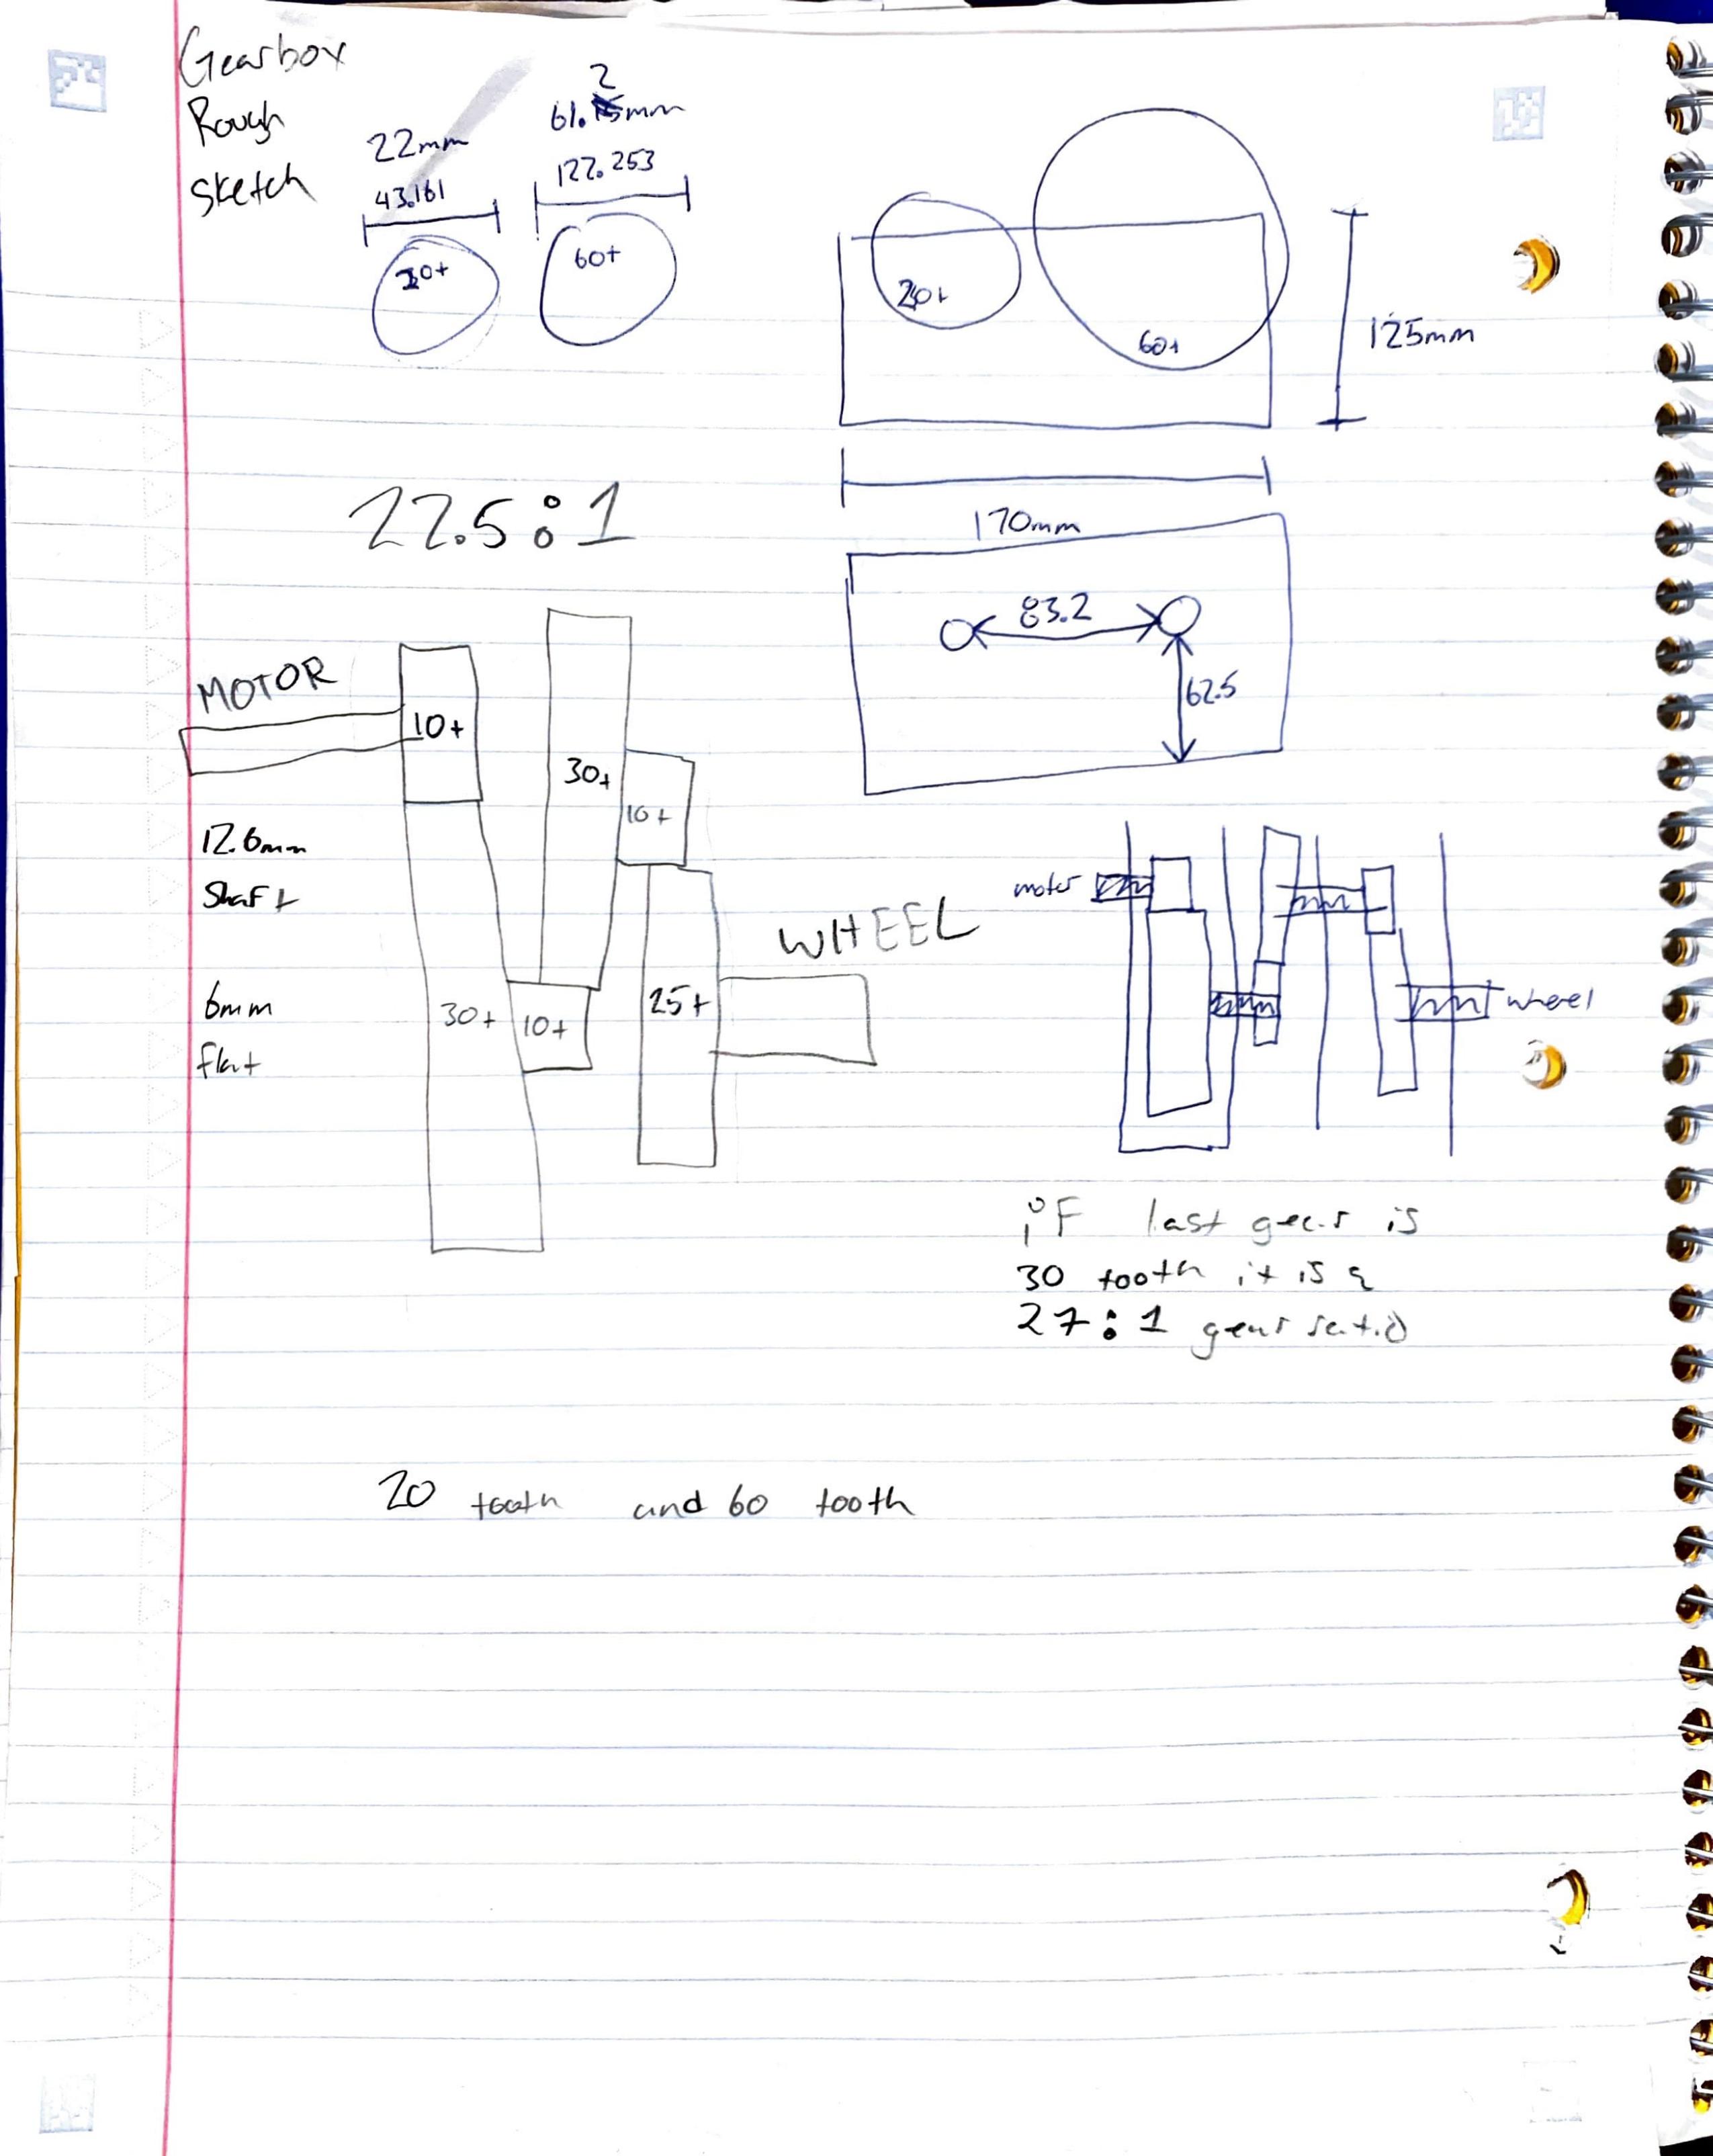 Gearbox
Rough
Sketch
22mm
43.161
2
61.5mm
122.253
20t
60t
20t
60t
125mm
170mm
22.5:1
83.2
62.5
MOTOR
10t
30t
10t
12.6mm
Shaft
WHEEL
6mm
flat
30t
10t
25t
motor
wheel
if last gear is
30 tooth it is a
27:1 gear ratio
20 tooth and 60 tooth